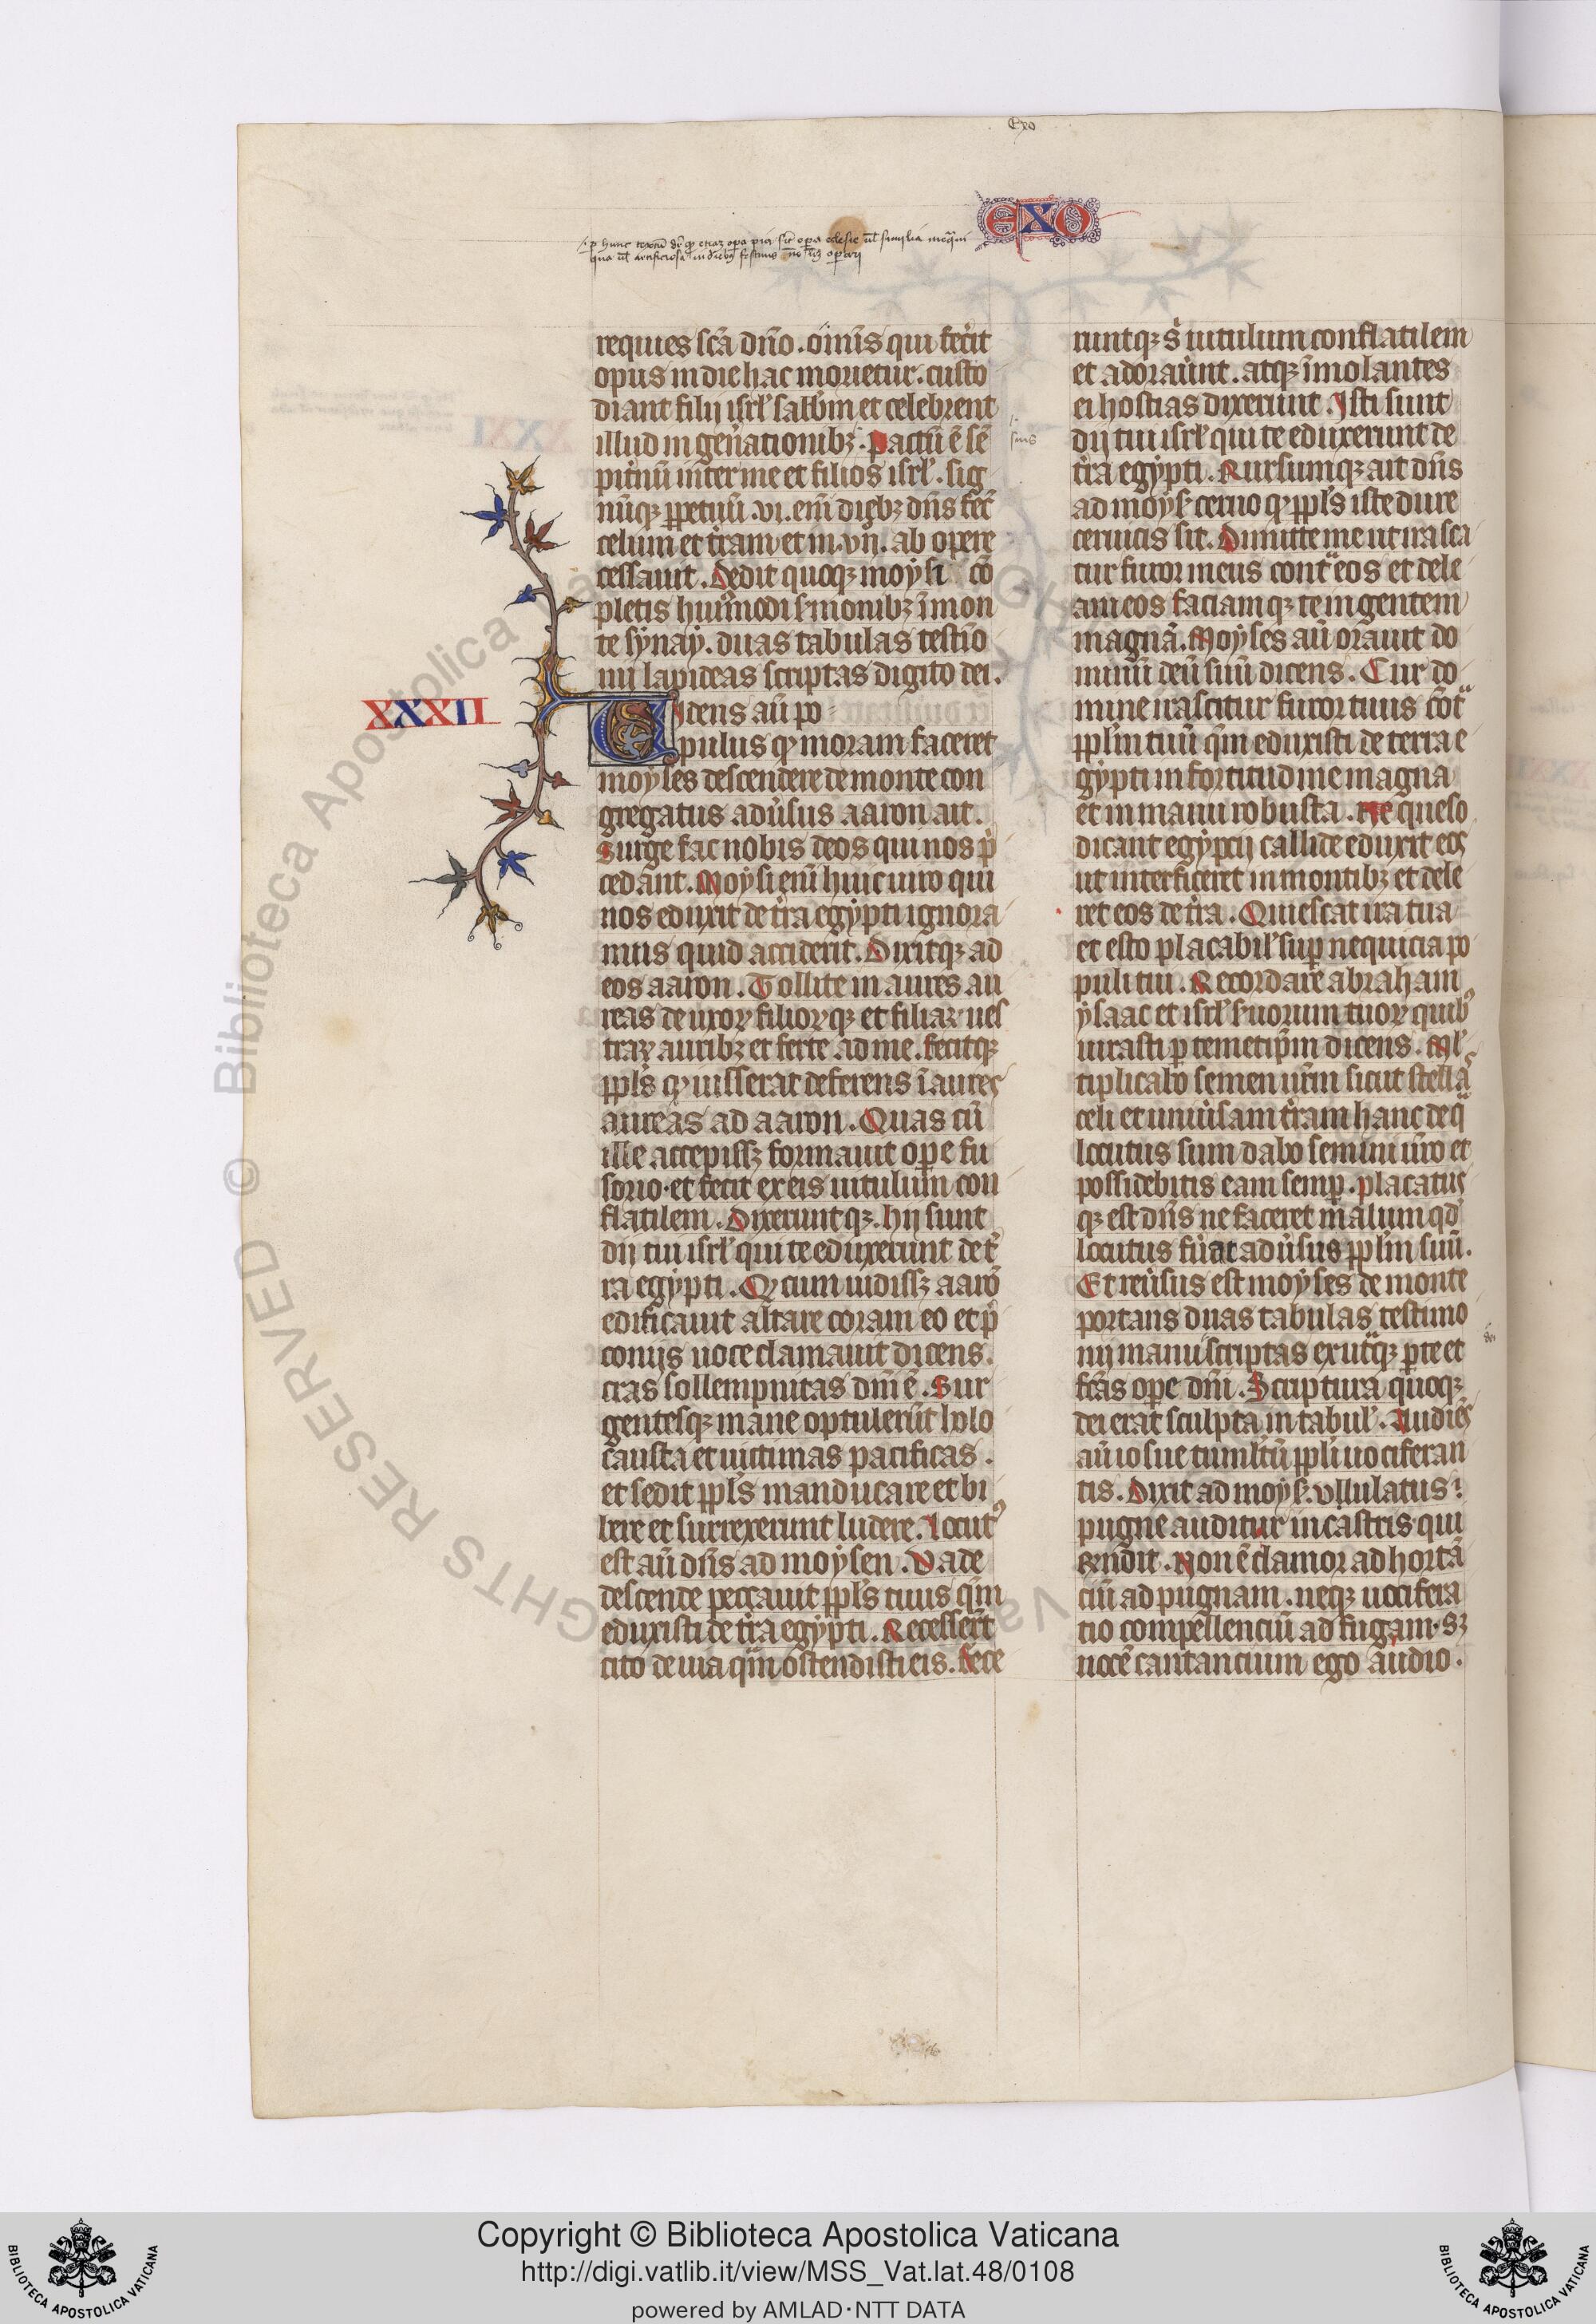 Exo
EXO
requies sc̄a dn̄o. om̄is qui fec̄it
opus in die hac morietur. custo
diant filij isrl̄ sabb̄m et celebrent
illud in gen̄ationibꝫ. Pactū ē sē
pit̄nū inter me et filios isrl̄. sig
nūqꝫ ꝑpetuū. vi. enī diebꝫ dn̄s fec̄
celum et t̄ram et in. vij. ab opere
cessauit. Dedit quoqꝫ moysi cō
pletis huiꝰmodi ẜmonibꝫ ī mon
te synay. duas tabulas testīo
nij lapideas scriptas digito dei.
XXXII
Uidens aū po
pulus ꝙ moram faceret
moyses descendere de monte con
gregatus adūsus aaron ait.
Surge fac nobis deos qui nos p̄
cedant. Moysi enī huic uiro qui
nos eduxit de t̄ra egypti ignora
mus quid acciderit. Dixitqꝫ ad
eos aaron. Tollite inaures au
reas de uxoꝝ filioꝝqꝫ et filiaꝝ ues
traꝝ auribꝫ et ferte ad me. fecitqꝫ
ppl̄s q̄ iusserat deferens īaures
aureas ad aaron. Quas cū
ille accepissꝫ formauit oꝑe fu
sorio. et fecit ex eis uitulum con
flatilem. Dixeruntqꝫ. hij sunt
dij tui isrl̄ qui te eduxerunt de t̄
ra egypti. Qꝫ cum uidissꝫ aarō
edificauit altare coram eo et p̄
conijs uoce clamauit dicens.
cras sollempnitas dn̄i ē. Sur
gentesqꝫ mane optulerūt holo
causta et uictimas pacificas.
et sedit ppl̄s manducare et bi
bere et surrexerunt ludere. Locutꝰ
est aū dn̄s ad moysen. Vade
descende peccauit ppl̄s tuus q̄m
eduxisti de t̄ra egypti. Recesserūt
cito de uia q̄m ostendisti eis. fece
runtqꝫ s̄ uitulum conflatilem
et adorauīnt. atqꝫ īmolantes
ei hostias dixerunt. Isti sunt
dij tui isrl̄ qui te eduxerunt de
t̄ra egypti. Rursumqꝫ ait dn̄s
ad moyẜ. cerno ꝙ ppl̄s iste dure
ceruicis sit. Dimitte me ut irasca
tur furor meus contᵃ eos et dele
am eos faciamqꝫ te in gentem
magnā. Moyses aū orauit do
minū deū suū dicens. Cur do
mine irascitur furor tuus cōtᵃ
ppl̄m tuū q̄m eduxisti de terra e
gypti in fortitudine magna
et in manu robusta. Ne queso
dicant egyptij callide eduxit eos
ut interficeret in montibꝫ et dele
ret eos de t̄ra. Quiescat ira tua
et esto placabil̄ suꝑ nequicia po
puli tui. Recordare abraham
ysaac et isrl̄ ẜuorum tuoꝝ quibꝰ
iurasti ꝑ temetip̄m dicens. Ml̄
tiplicabo semen ur̄m sicut stellas
celi et uniūsam t̄ram hanc de qᵃ
locutus sum dabo semini ur̄o et
possidebitis eam semꝑ. placatus
qꝫ est dn̄s ne faceret malum qd̄
locutus fūat adūsus ppl̄m suū.
Et reūsus est moyses de monte
portans duas tabulas testimo
nij manu scriptas ex utᵃqꝫ ꝑte et
fc̄as oꝑe dn̄i. Scriptura quoqꝫ
dei erat sculpta in tabul̄. Audiēs
aū iosue tumultū ppl̄i uociferan
tis. Dixit ad moyẜ. vllulatus
pugne auditur in castris. qui
rn̄dit. Non ē clamor ad hortā
ciū ad pugnam. neqꝫ uocifera
tio compellenciū ad fugam. sꝫ
uocē cantancium ego audio.
Copyright © Biblioteca Apostolica Vaticana
http://digi.vatlib.it/view/MSS_Vat.lat.48/0108
powered by AMLAD·NTT DATA
BIBLIOTECA APOSTOLICA VATICANA
BIBLIOTECA APOSTOLICA VATICANA